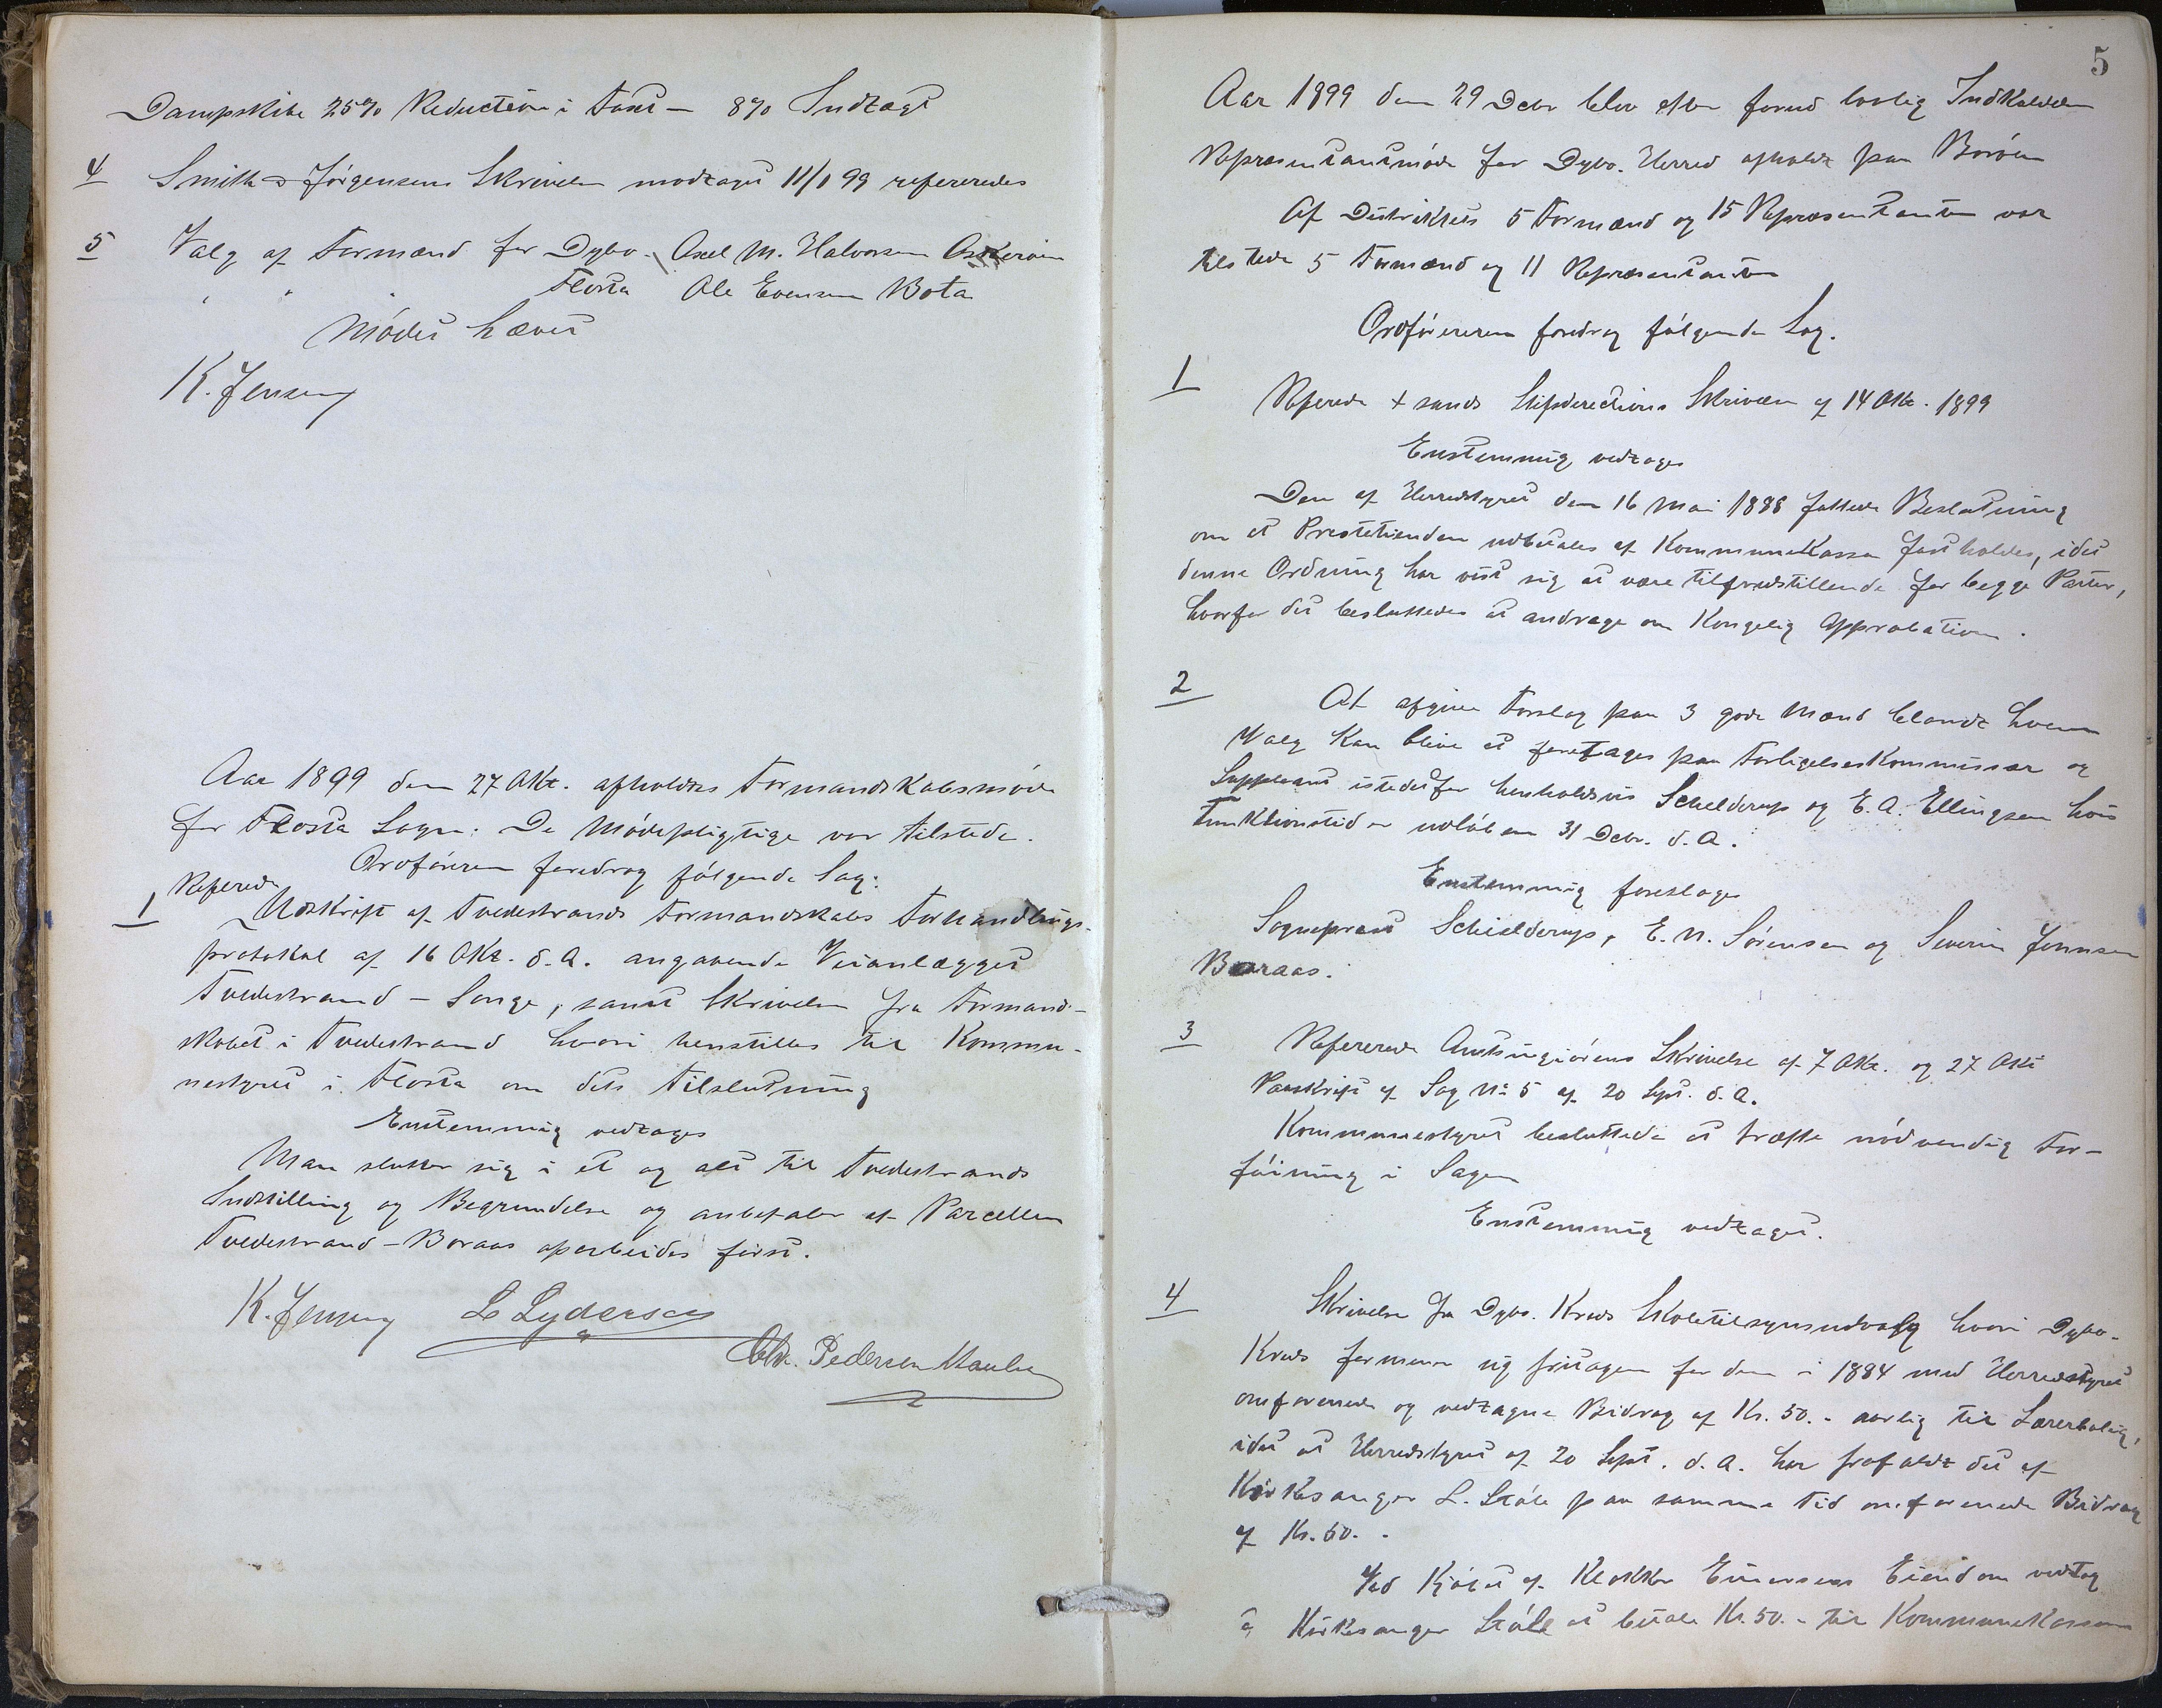 Dampskibe 25% Reduction i Taxt – 8% Indtægt
4 Smith & Jørgensens Skrivelse modtaget 11/1 99 refereredes
5 Valg af Formænd for Dybv. Axel M. Halvorsen Askerøen
" " " Flosta Ole Evensen Bota
Mødet hævet
K. Jensen
Aar 1899 den 27 Okt. afholdtes Formandskabsmøde
for Flosta Sogn: De Mødepligtige var tilstede.
Ordføreren foredrog følgende Sag:
Refererede
1 Udskrift af Tvedestrands Formandskabs Forhandlings-
protokol af 16 Okt. d.A. angaaende Veianlægget
Tvedestrand – Songe, samt Skrivelse fra Formand-
skabet i Tvedestrand hvori henstilles til Kommu-
nestyret i Flosta om dets Tilslutning
Enstemmig vedtoges
Man slutter sig i et og alt til Tvedestrands
Indstilling og Begrundelse og anbefaler at Parcellen
Tvedestrand – Boraas oparbeides først.
K. Jensen L Lydersen
Chr. Pedersen Staubø
5
Aar 1899 den 29 Debr blev efter forud lovlig Indkaldelse
Repræsentantmøde for Dybv. Herred afholdt paa Borøen
Af Distriktets 5 Formænd og 15 Repræsentanter var
tilstede 5 Formænd og 11 Repræsentanter
Ordføreren foredrog følgende Sag.
1 Refererede X sands Stiftsdirections Skrivelse af 14 Okt. 1899
Enstemmig vedtoges
Den af Herredstyret den 16 Mai 1888 fattede Beslutning
om at Prestetienden udbetales af Kommunekassen fastholdes, idet
denne Ordning har vist sig at være tilfredstillende for begge Parter,
hvorfor det besluttedes at andrage om Kongelig Approbation.
2 At afgive Forslag paa 3 gode Mænd blandt hvem
Valg kan blive at foretages paa Forligelseskommissær og
Suppleant istedetfor henholdsvis Schelderup og E. A. Ellingsen hvis
Funktionstid er udløben 31 Debr. d.A.
Enstemmig foresloges
Sogneprest Schielderup, E. N. Sørensen og Severin Jonnsen
Boraas.
3 Refererede Amtsingiørens Skrivelse af 7 Okt. og 27 Okt
Paaskrift af Sag No 5 af 20 Sept. d.A.
Kommunestyret besluttede at træffe nødvendig For-
føining i Sagen
Enstemmig vedtaget.
4 Skrivelse fra Dybv. Kreds Skoletilsynsudvalg hvori Dybv.
Kreds formener sig fritagen for den i 1884 med Herredstyret
omforenede og vedtagne Bidrag af Kr. 50.- aarlig til Lærerbolig,
idet at Herredstyret af 20 Sept. d.A. har frafaldt det af
Kirkesanger L. Støle paa samme Tid omforenede Bidrag
af Kr. 60.-
Ved Kjøbet af Klokker Einersens Eiendom vedtog
Kirkesanger Støle at betale Kr. 50.- til Kommunekassen